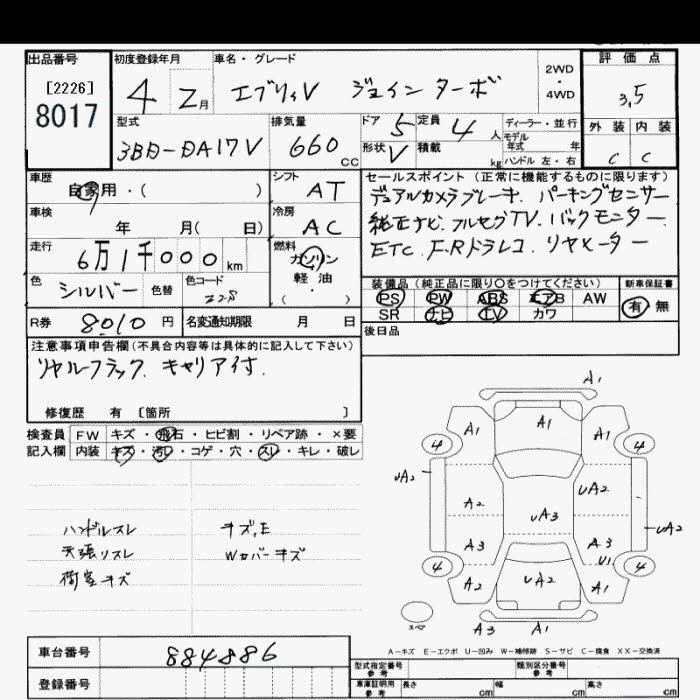 出品番号 初度登録年月 車名・グレード 評価点
[2226] 8017 4 2月 エブリィV ジョイン ターボ 2WD・4WD 3,5
型式 排気量 ドア 5 定員 4人 ディーラー・並行 外装 内装
3BD-DA17V 660cc 形状 V 積載 kg モデル年式 年 ハンドル 左・右 C C
車歴 自家用・( ) シフト AT セールスポイント(正常に機能するものに限ります)
デュアルカメラブレーキ. パーキングセンサー
車検 年 月( 日) 冷房 AC 純正ナビ. フルセグTV. バックモニター
走行 6万1千000km 燃料 ガソリン 軽油・( ) ETC F.Rドラレコ. リヤヒーター
色 シルバー 色替 色コード Z2S 装備品(純正品に限り○をつけてください) 新車保証書
PS PW ABS エアB AW 有・無
SR ナビ TV カワ
R券 8010円 名変通知期限 月 日 後日品
注意事項申告欄(不具合内容等は具体的に記入して下さい)
キャリア付.
修復歴 有 [箇所 ]
検査員記入欄 FW キズ・飛石・ヒビ割・リペア跡・×要
内装 キズ・汚レ・コゲ・穴・スレ・キレ・破レ
ハンドルスレ キズ,E
天張リスレ Wカバーキズ
荷室キズ
A1
A1 A1 A1
4 4
UA2 A2 UA3 UA2 UA2
A3 A3 U1
4 4
A2 UA2 A1
スペア A3 A1
A-キズ E-エクボ U-凹み W-補修跡 S-サビ C-腐食 XX-交換済
車台番号 884886 型式指定番号 参考 類別区分番号 参考
登録番号 車庫証明用 参考 長さ cm 幅 cm 高さ cm